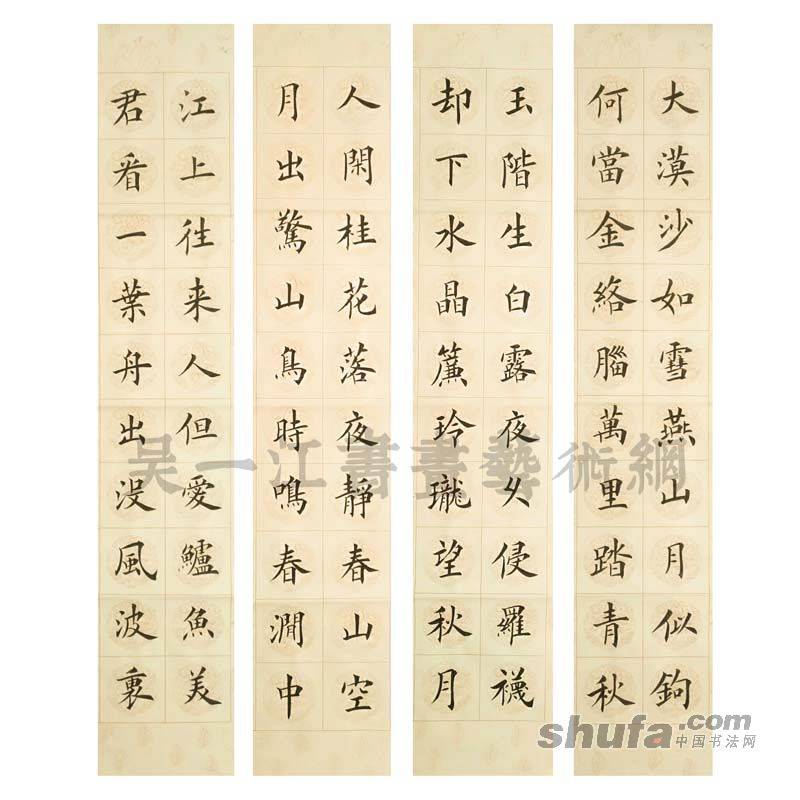 大漠沙如雪燕山月似鉤
何當金絡腦萬里踏青秋
玉階生白露夜久侵羅襪
却下水晶簾玲瓏望秋月
人閑桂花落夜靜春山空
月出驚山鳥時鳴春澗中
江上往来人但愛鱸魚美
君看一葉舟出没風波裏
吴一江書畫藝術網
shufa.com
中国书法网